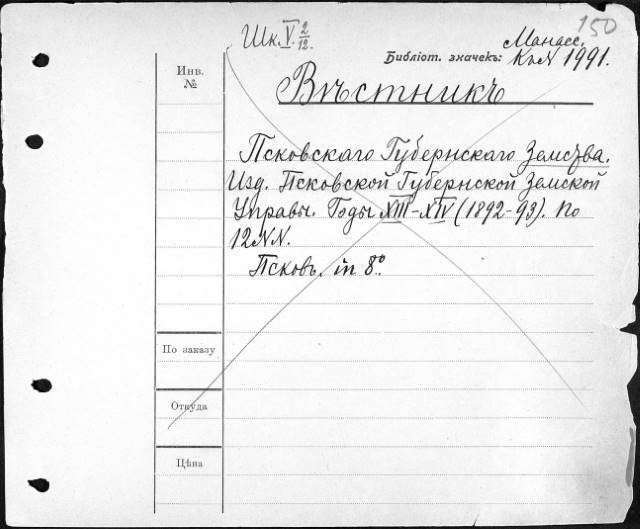 150
Шк. V. 2/12.
Манасс.
Библіот. значекъ: К.№ 1991.
Инв. №
Вѣстникъ
Псковскаго Губернскаго Земства.
Изд. Псковской Губернской Земской
Управы. Годы XIII–XIV (1892–93). По
12 NN.
Псковъ. in 8º.
По заказу
Откуда
Цѣна